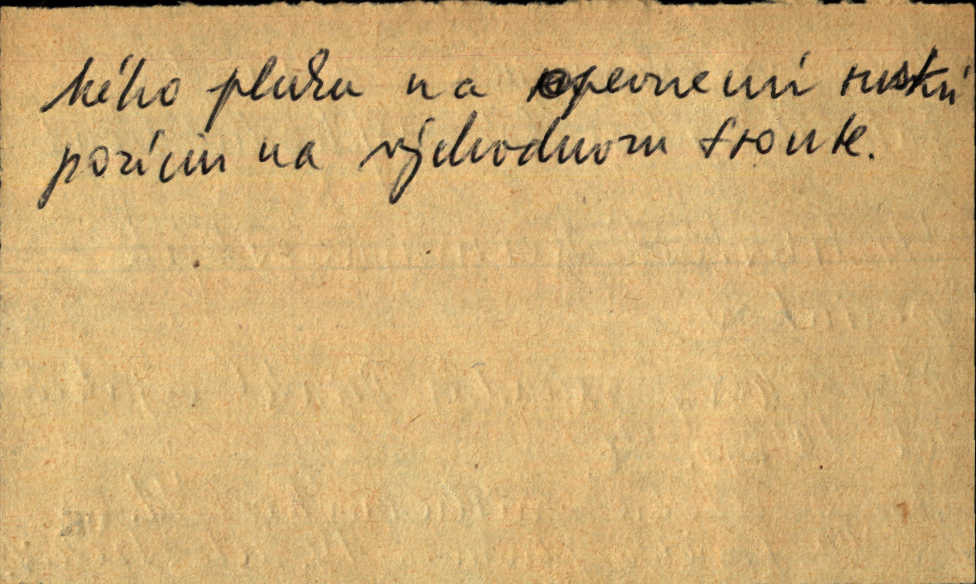 kého pluku na opevnenú ruskú
pozíciu na východnom fronte.